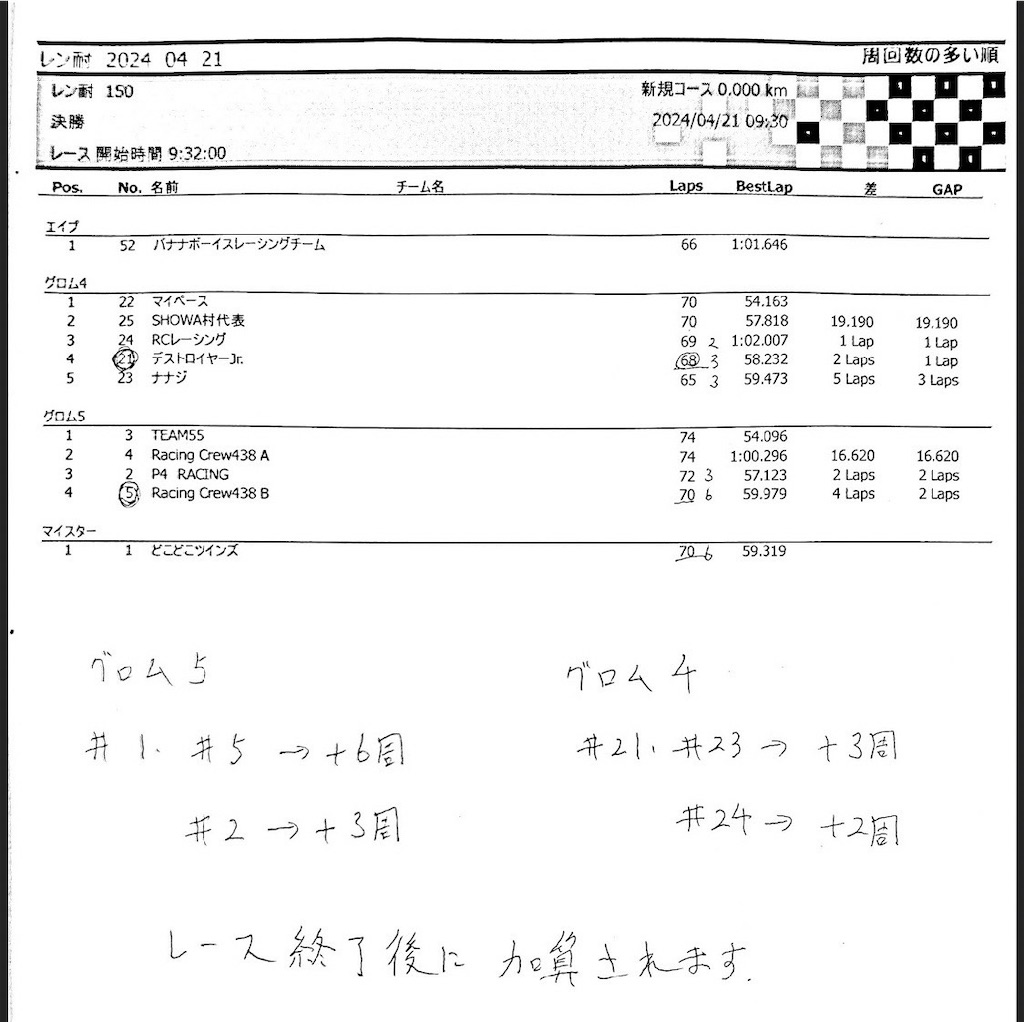 レン耐 2024 04 21 周回数の多い順
レン耐 150 新規コース 0,000 km
決勝 2024/04/21 09:30
レース開始時間 9:32:00
Pos. No. 名前 チーム名 Laps BestLap 差 GAP
エイプ
1 52 バナナボーイスレーシングチーム 66 1:01.646
グロム4
1 22 マイペース 70 54.163
2 25 SHOWA村代表 70 57.818 19.190 19.190
3 24 RCレーシング 69 2 1:02.007 1 Lap 1 Lap
4 21 デストロイヤーJr. 68 3 58.232 2 Laps 1 Lap
5 23 ナナジ 65 3 59.473 5 Laps 3 Laps
グロム5
1 3 TEAM55 74 54.096
2 4 Racing Crew438 A 74 1:00.296 16.620 16.620
3 2 P4 RACING 72 3 57.123 2 Laps 2 Laps
4 5 Racing Crew438 B 70 6 59.979 4 Laps 2 Laps
マイスター
1 1 どこどこツインズ 70 6 59.319
グロム5
#1. #5 → +6周
#2 → +3周
グロム4
#21. #23 → +3周
#24 → +2周
レース終了後に加算されます.